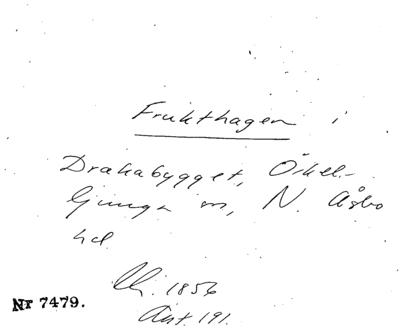 Frukthagen i
Drakabygget, Örkel-
ljunga sn, N. Åsbo
hd
Nr 7479.
1856
Ant. 191.